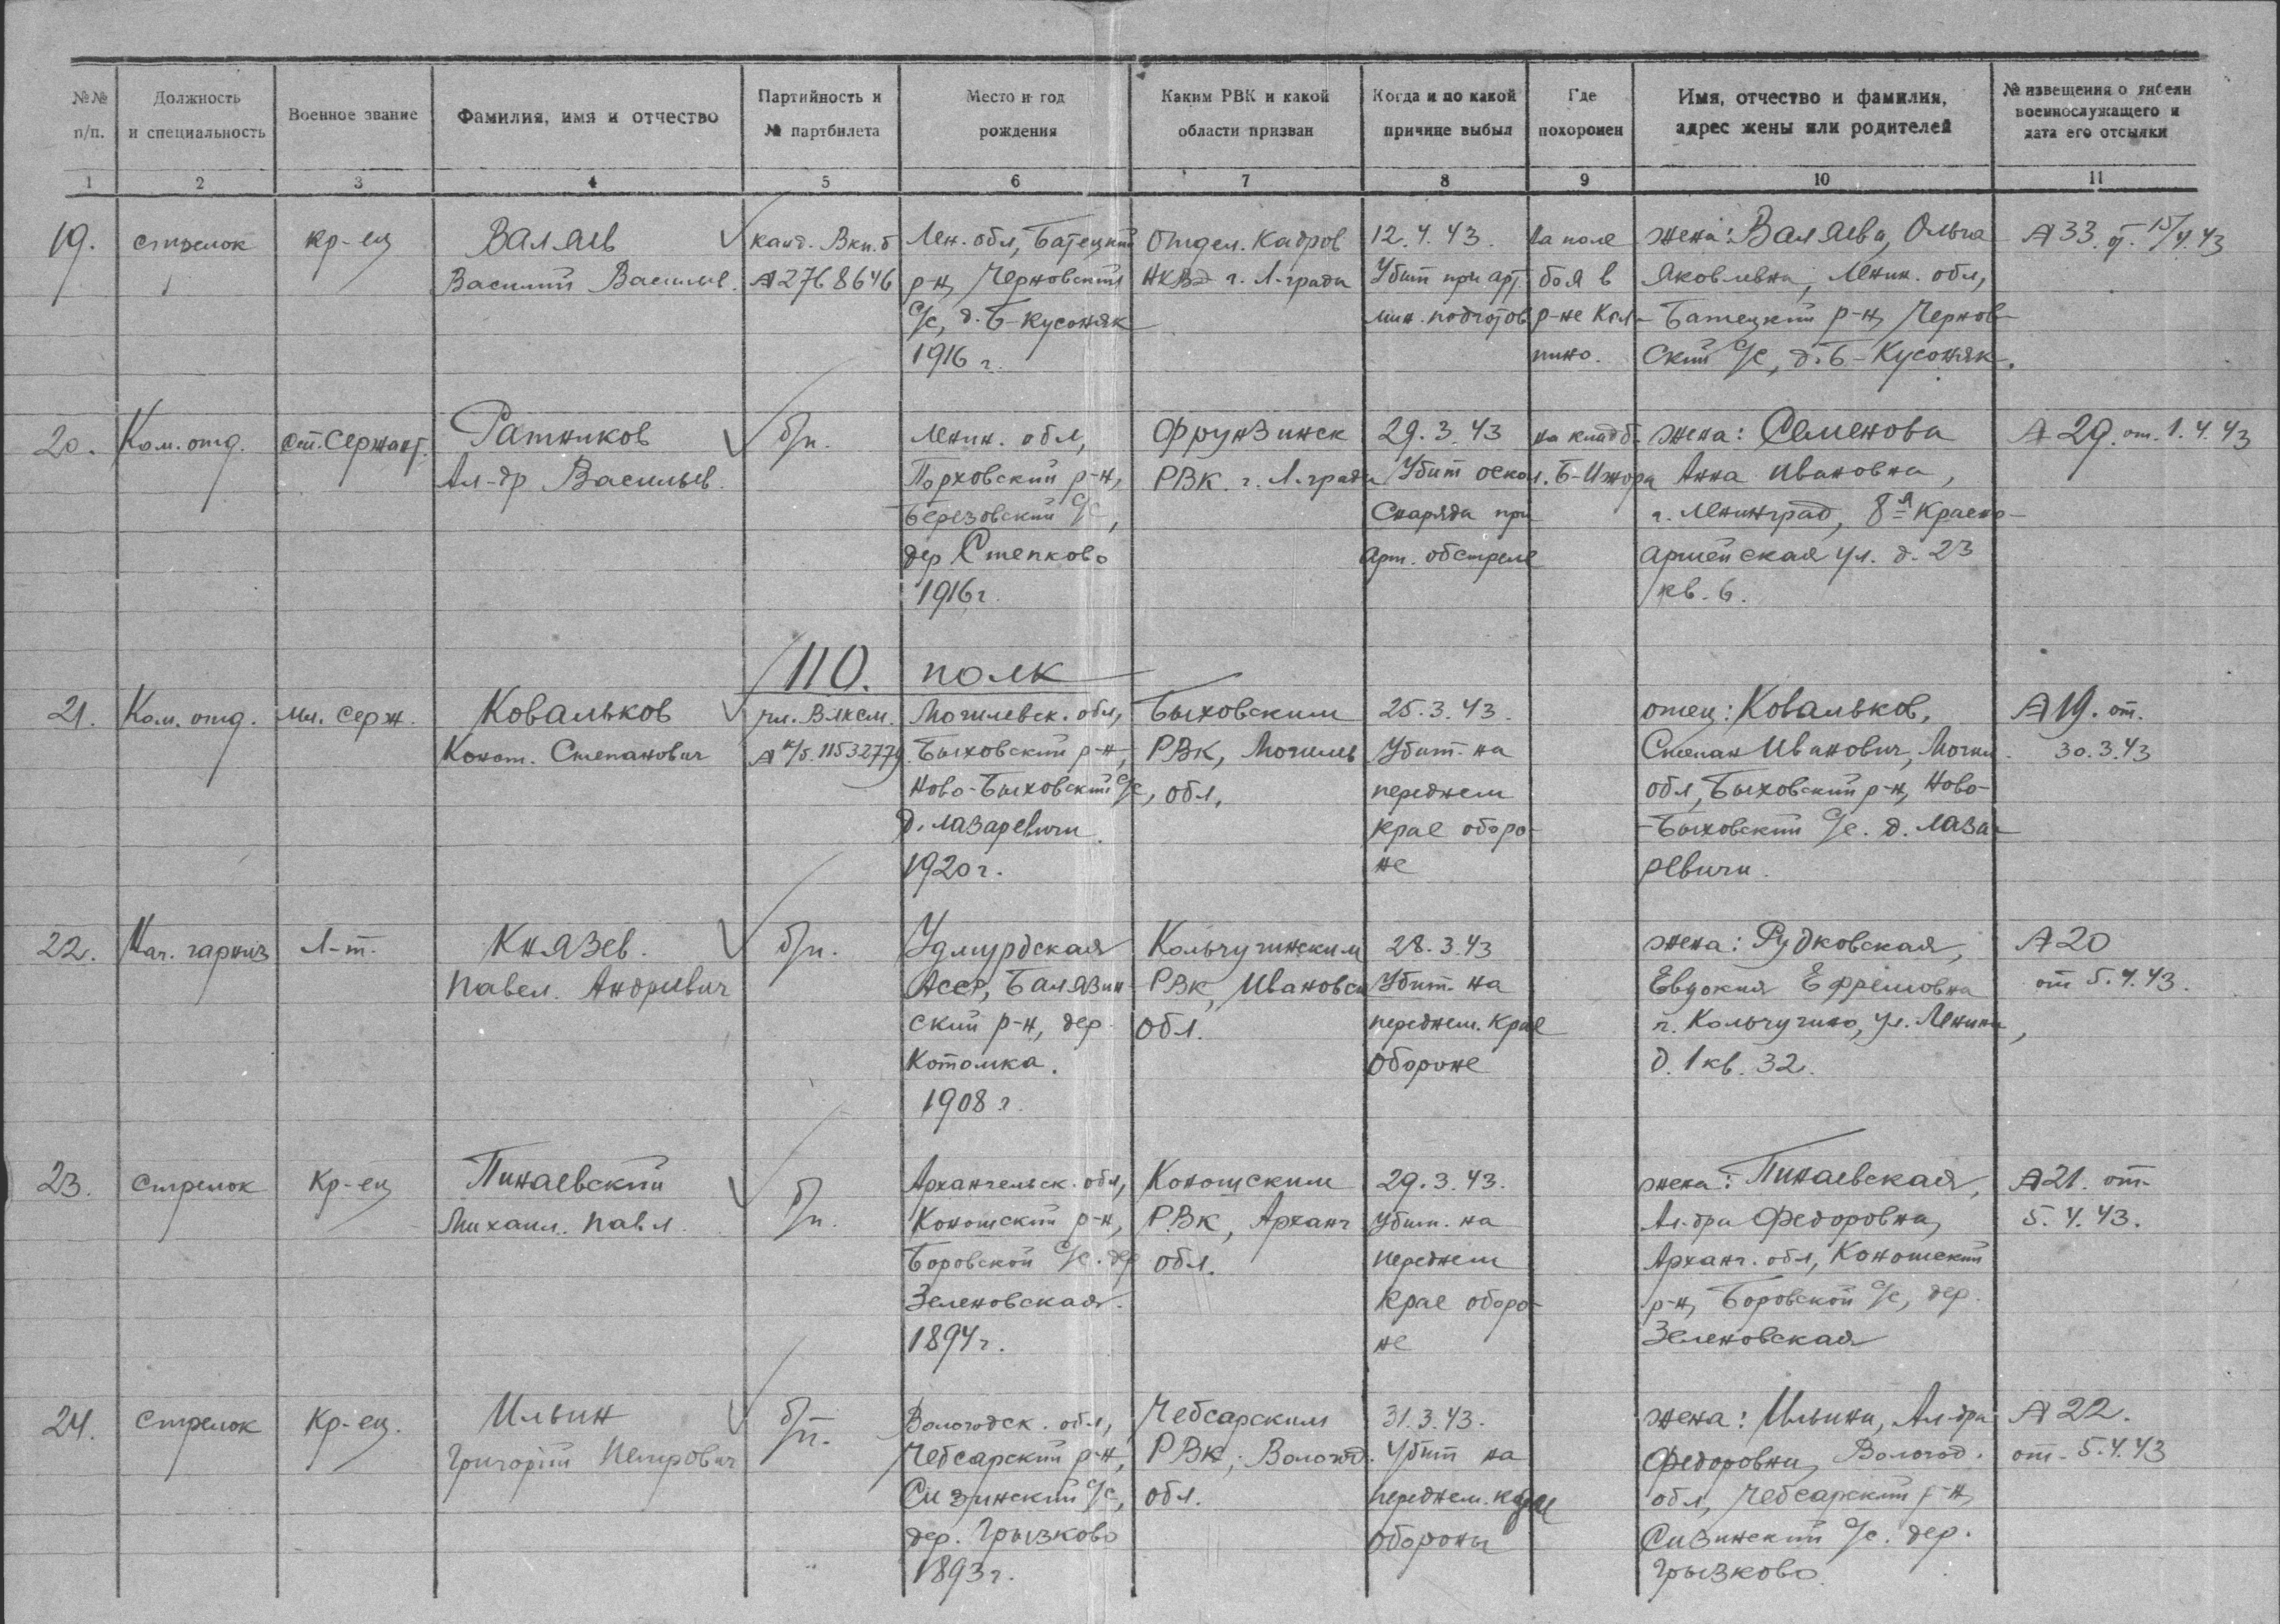 №№ п/п.
Должность и специальность
Военное звание
Фамилия, имя и отчество
Партийность и № партбилета
Место и год рождения
Каким РВК и какой области призван
Когда и по какой причине выбыл
Где похоронен
Имя, отчество и фамилия, адрес жены или родителей
№ извещения о гибели военнослужащего и дата его отсылки
1 2 3 4 5 6 7 8 9 10 11
19.
стрелок
кр-ец
Валяев
Василий Васильев.
канд. Вкп.б
А2768646
Лен. обл, Батецкий
р-н, Черновский
с/с, д. Б-Кусоняк
1916 г.
Отдел. Кадров
НКВД г. Л-града
12.4.43.
Убит при арт
мин. подготов
На поле
боя в
р-не Кол-
пино.
жена: Валяева, Ольга
Яковлевна, Ленин. обл,
Батецкий р-н, Чернов-
ский с/с, д. Б-Кусоняк.
А 33. от. 15/4.43
20.
Ком. отд.
ст. Сержант.
Ратников
Ал-др Васильев.
б/п.
Ленин. обл,
Порховский р-н,
Березовский с/с,
дер Степково
1916г.
Фрунзинск
РВК. г. Л.града
29.3.43
Убит оскол.
Снаряда при
арт. обстреле
на кладб.
Б-Ижора
жена: Семенова
Анна Ивановна,
г. Ленинград, 8-я Красно-
армейская ул. д. 23
кв. 6.
А 29. от. 1.4.43
110. полк
21.
Ком. отд.
Мл. серж.
Ковальков
Конст. Степанович
чл. Влксм.
А к/б. 11532779.
Могилевск. обл,
Быховский р-н,
Ново-Быховский с/с,
д. Лазаревичи.
1920г.
Быховским
РВК, Могилев
обл,
25.3.43.
Убит на
переднем
крае оборо-
не
отец: Ковальков,
Степан Иванович, Могил.
обл, Быховский р-н, Ново-
-Быховский с/с. д. Лаза-
ревичи.
А 19. от.
30.3.43
22.
Нач. гарниз
Л-т.
Князев.
Павел. Андреевич
б/п.
Удмурдская
Асср, Балязин-
ский р-н, дер.
Котомка.
1908 г.
Кольчугинским
РВК, Ивановск
обл.
28.3.43
Убит. на
переднем. крае
обороне
жена: Рудковская,
Евдокия Ефремовна
г. Кольчугино, ул. Ленина,
д. 1 кв. 32.
А 20
от 5.4.43.
23.
Стрелок
Кр-ец
Пинаевский
Михаил. Павл.
б/п.
Архангельск. обл,
Коношский р-н,
Боровской с/с. дер
Зеленовская.
1894г.
Коношским
РВК, Арханг
обл.
29.3.43.
Убит. на
переднем
крае оборо-
не
жена: Пинаевская,
Ал-дра Федоровна,
Арханг. обл, Коношский
р-н, Боровской с/с, дер.
Зеленовская
А 21. от.
5.4.43.
24.
Стрелок
Кр-ец.
Ильин
Григорий Петрович
б/п.
Вологодск. обл,
Чебсарский р-н,
Сизинский с/с,
дер. Грызково
1893г.
Чебсарским
РВК, Вологод.
обл.
31.3.43.
Убит на
переднем. крае
обороны
жена: Ильина, Ал-дра
Федоровна, Вологод.
обл, Чебсарский р-н,
Сизинский с/с. дер.
Грызково.
А 22.
от. 5.4.43